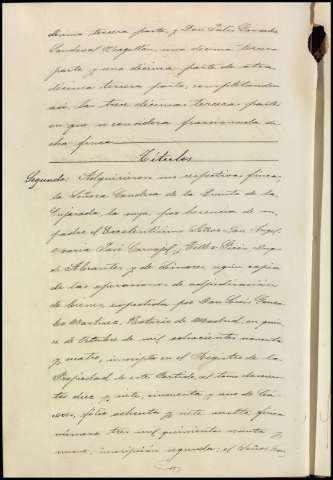 décima tercera parte, y Don Julio Quesada
Sandoval Magallón, una décima tercera
parte y una décima parte de otra
décima tercera parte, completando
así las trece décimas tercera partes
en que se considera fraccionada di-
cha finca
Títulos
Segundo: Adquirieron sus respectivas fincas
la Señora Condesa de la Quinta de la
Enjarada, la suya por herencia de su
padre el Excelentísimo Señor Don Angel
María José Carvajal y Téllez Girón, Duque
de Abrantes y de Linares según copia
de las operaciones de adjudicación
de bienes expedida por Don Luis Gonza-
lez Martinez, Notario de Madrid, en quin-
ce de Octubre de mil ochocientos noventa
y cuatro, inscripta en el Registro de la
Propiedad de este Partido, al tomo doscien-
tos diez y siete, cincuenta y uno de
folio ochenta y siete vuelto, finca
número tres mil quinientos
nueve, inscripción segunda; el Señor